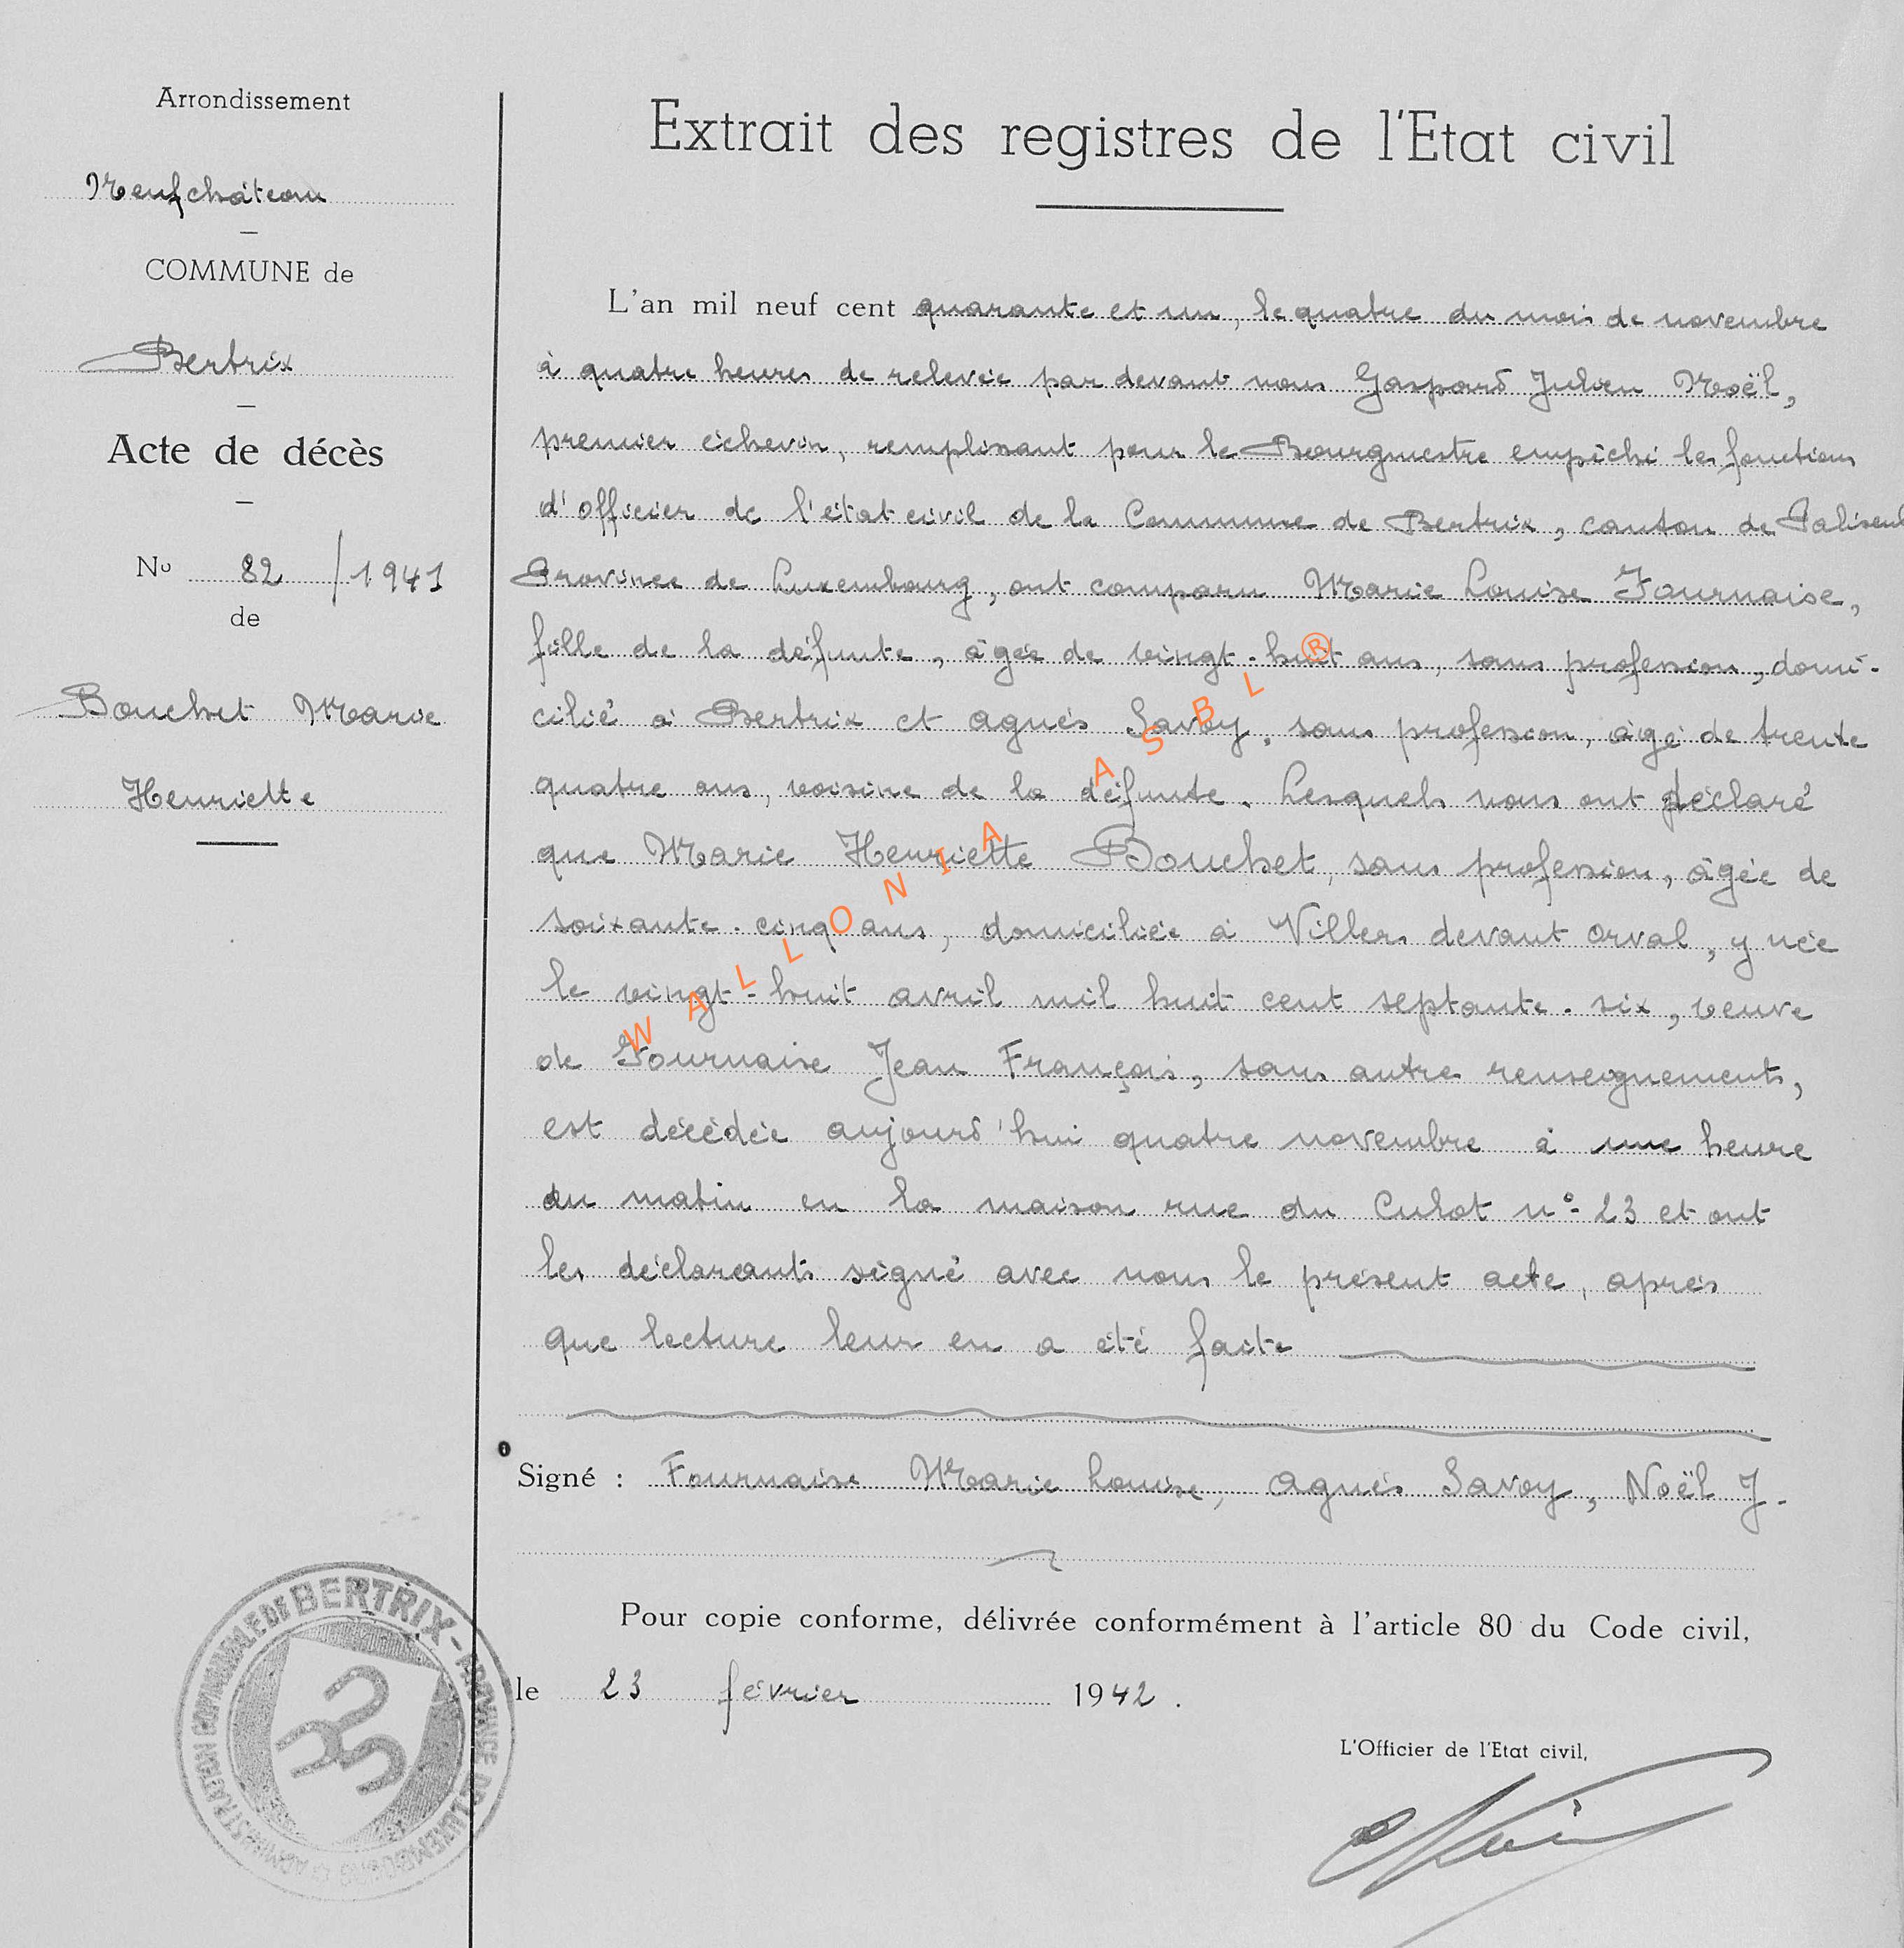 Arrondissement
Neufchâteau
COMMUNE de
Bertrix
Acte de décès
No 82 / 1941
de
Bouchet Marie
Henriette
Extrait des registres de l'Etat civil
L'an mil neuf cent quarante et un, le quatre du mois de novembre
à quatre heures de relevée par devant nous Gaspard Julien Noël,
premier échevin, remplissant pour le Bourgmestre empêché les fonctions
d'officier de l'état civil de la Commune de Bertrix, canton de Paliseul
Province de Luxembourg, ont comparu Marie Louise Fournaise,
fille de la défunte, âgée de vingt-huit ans, sans profession, domi-
cilié à Bertrix et Agnès Savoy, sans profession, âgé de trente
quatre ans, voisine de la défunte. Lesquels nous ont déclaré
que Marie Henriette Bouchet, sans profession, âgée de
soixante-cinq ans, domiciliée à Villers devant Orval, y née
le vingt-huit avril mil huit cent septante-six, veuve
de Fournaise Jean François, sans autre renseignements,
est décédée aujourd'hui quatre novembre à une heure
du matin en la maison rue du Culot n° 23 et ont
les déclarants signé avec nous le présent acte, après
que lecture leur en a été faite
Signé : Fournaise Marie Louise, Agnès Savoy, Noël J.
Pour copie conforme, délivrée conformément à l'article 80 du Code civil,
le 23 février 1942.
L'Officier de l'Etat civil,
ADMINISTRATION COMMUNALE DE BERTRIX - PROVINCE DE LUXEMBOURG
WALLONIA ASBL ®